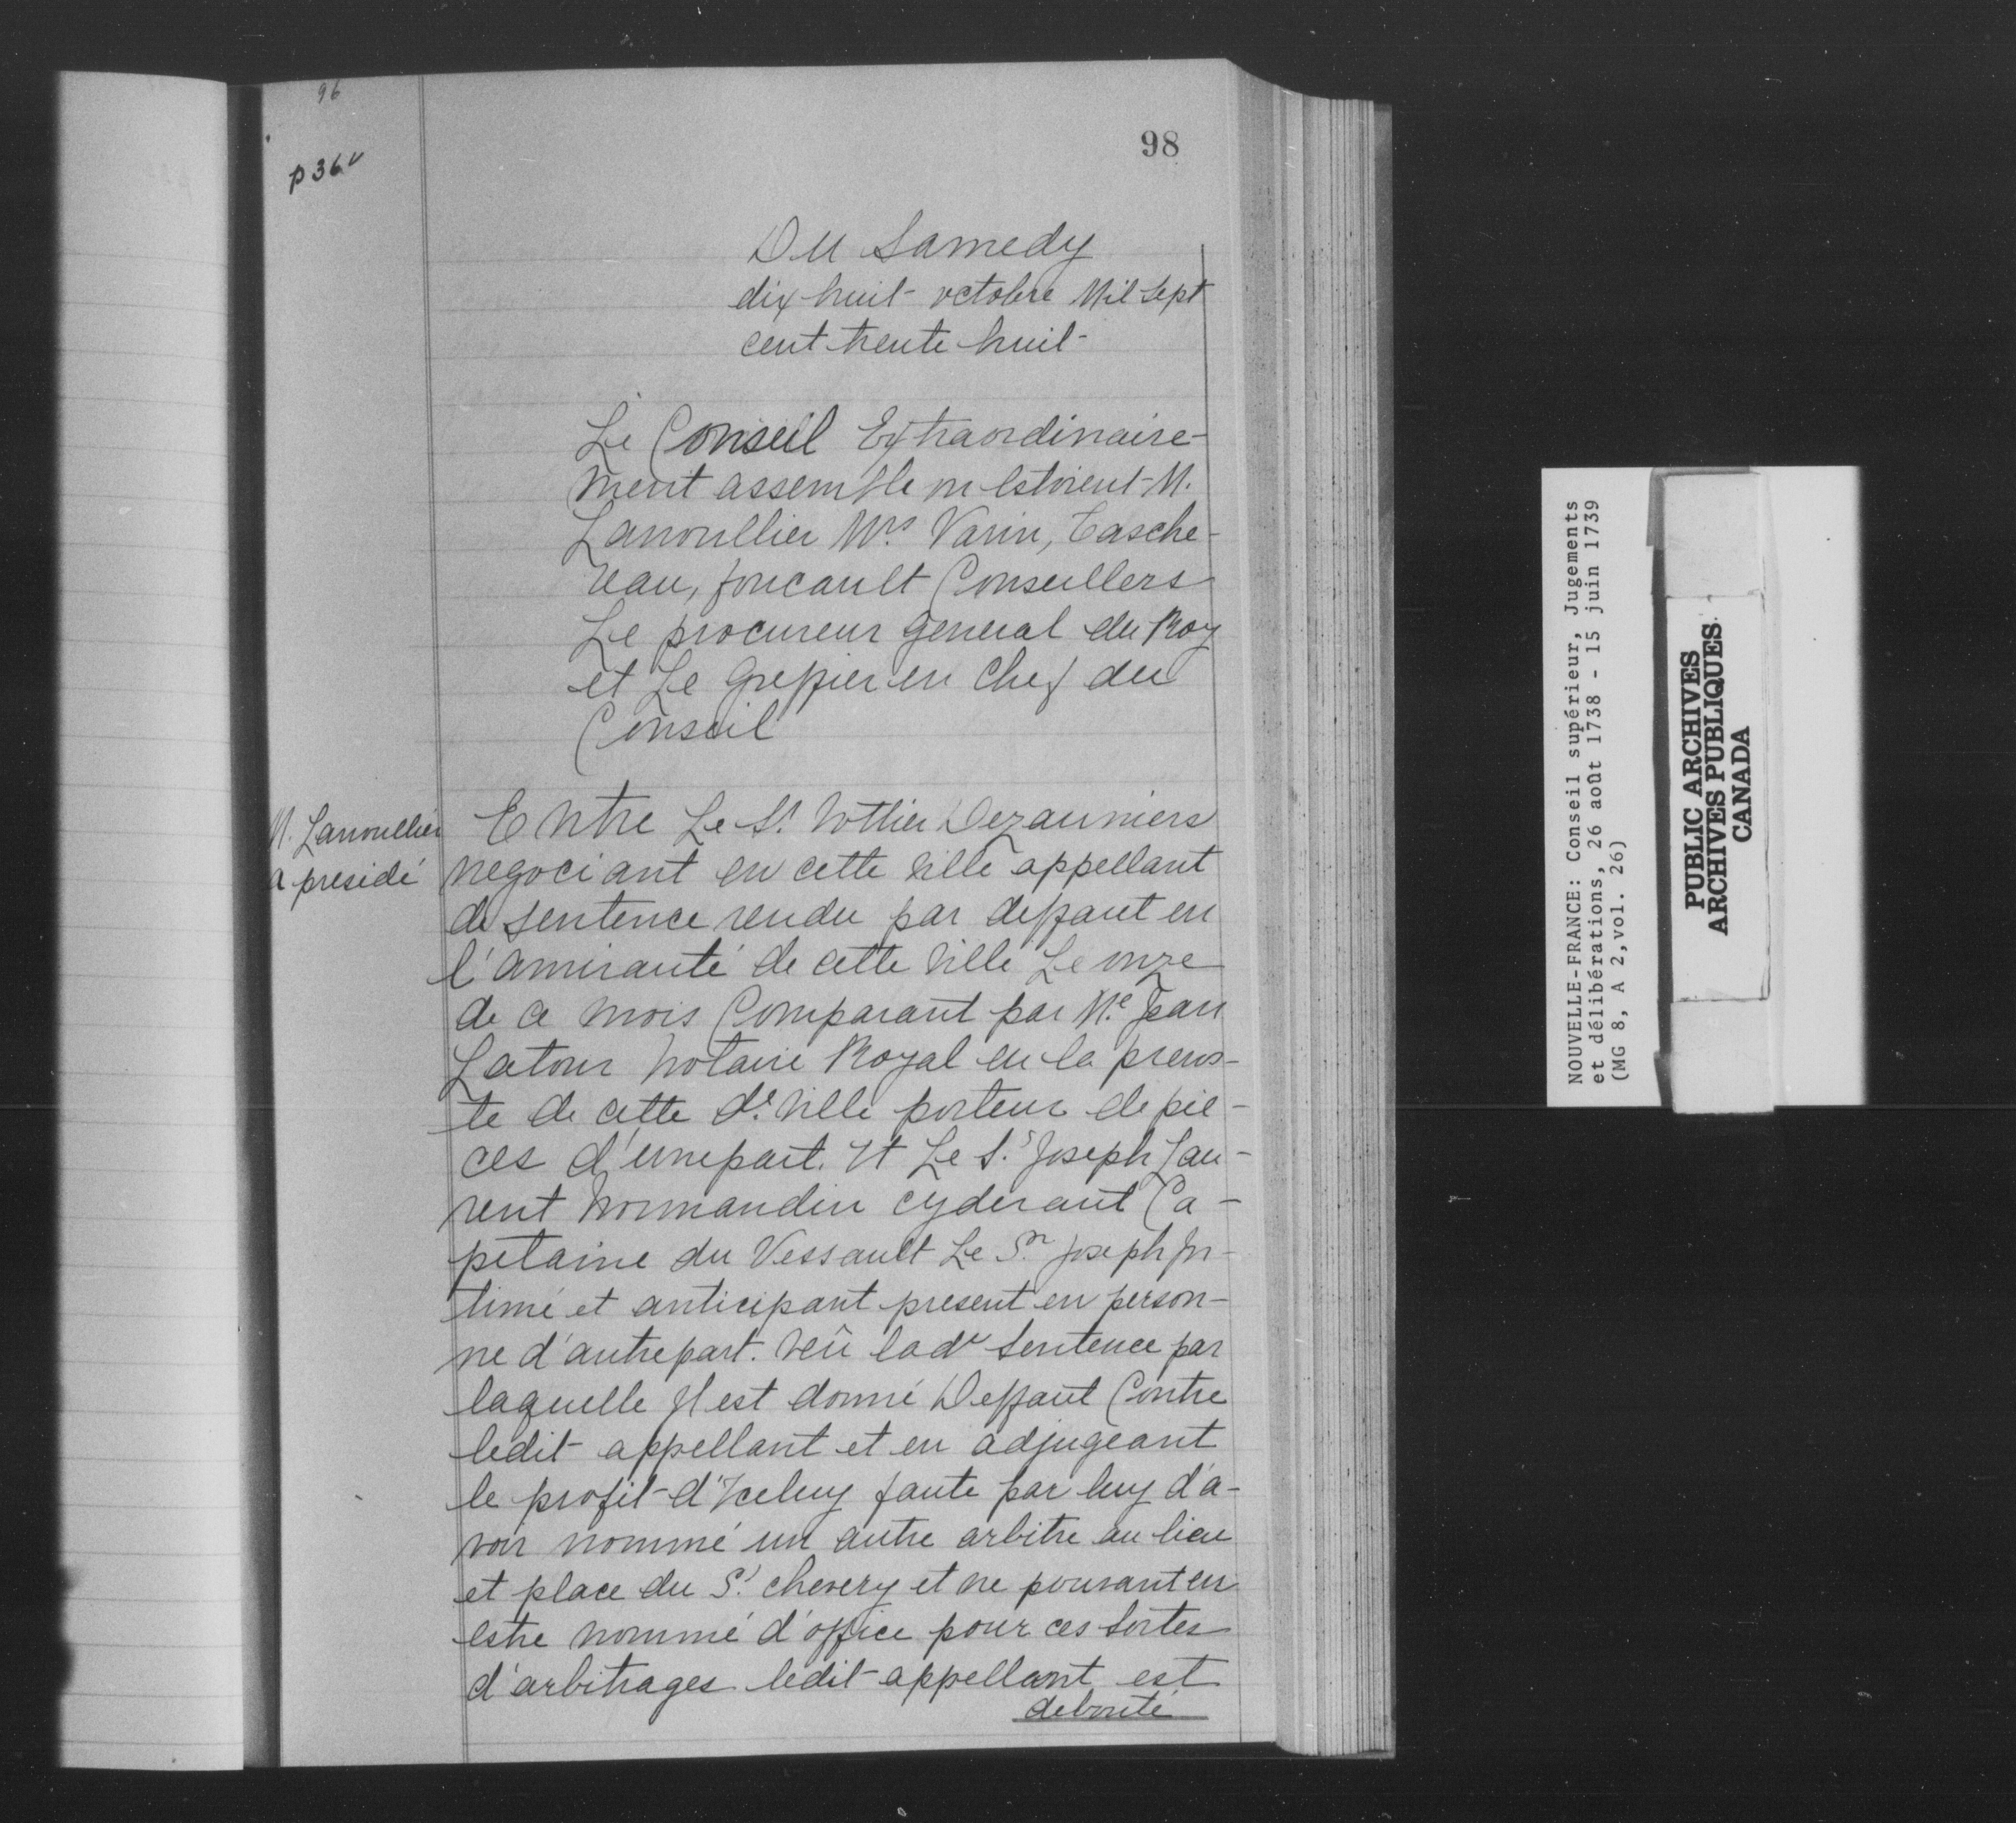 96
98
p 36v
Du Samedy
dix huit octobre Mil Sept
cent trente huit
Le Conseil Extraordinaire-
ment assemblé ou Estoient M.
Lanoullier Mrs Varin, Tasche-
reau, foucault Conseillers
Le procureur general du Roy
et Le greffier en chef du
Conseil
M. Lanoullier
a presidé
Entre Le Sr. Nottier Dezauniers
negociant en cette ville appellant
de sentence rendue par deffaut en
l'amirauté de cette ville Le onze
de ce mois Comparant par Me. Jean
Latour Notaire Royal en la prevos-
te de cette de. ville porteur de pie-
ces d'unepart. Et Le Sr. Joseph Lau-
rent Normandin cydevant Ca-
pitaine du Vessault Le St. Joseph In-
timé et anticipant present en person-
ne d'autrepart. Veû lade sentence par
laquelle Il est donné Deffaut Contre
ledit appellant et en adjugeant
le profit d'Iceluy faute par luy d'a-
voir nommé un autre arbitre au lieu
et place du Sr. chevery et ne pouvant en
estre nommé d'office pour ces sortes
d'arbitrages ledit appellant est
debouté
NOUVELLE-FRANCE: Conseil supérieur, Jugements
et délibérations, 26 août 1738 - 15 juin 1739
(MG 8, A 2,vol. 26)
PUBLIC ARCHIVES
ARCHIVES PUBLIQUES
CANADA